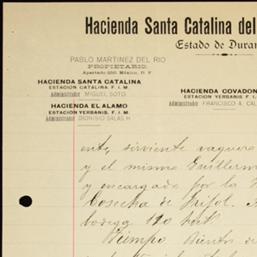 Hacienda Santa Catalina del
Estado de Duran
PABLO MARTINEZ DEL RIO
PROPIETARIO.
Apartado 250. México, D. F.
HACIENDA SANTA CATALINA
ESTACION CATALINA. F. I. M.
Administrador MIGUEL SOTO.
HACIENDA COVADON
ESTACION YERBANIS. F.
Administrador FRANCISCO A. CAL
HACIENDA EL ALAMO
ESTACION YERBANIS. F. I. M.
Administrador DIONISIO SALAS H
ent, sirviente vaquero
y el mismo Guillerm
y encargada por la
Cosecha de frijol.
bodega 190
Tiempo. Vientos de